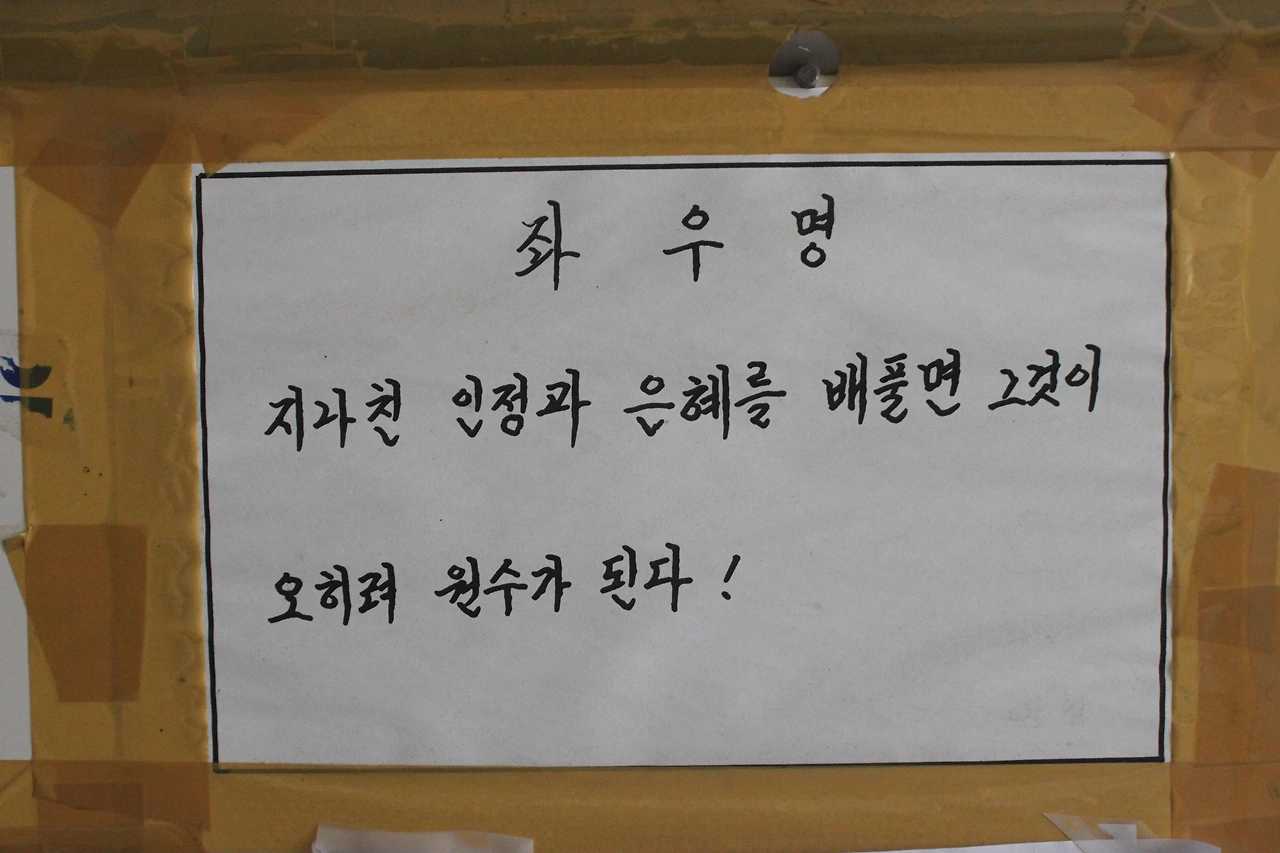 좌 우 명
지나친 인정과 은혜를 배풀면 그것이
오히려 원수가 된다 !